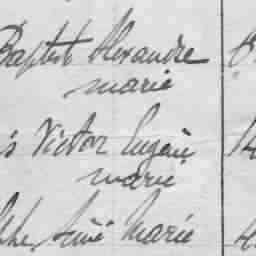 Baptist Alexandre
marie
s Victor Eugène 14
marie
Aimé Marie 4